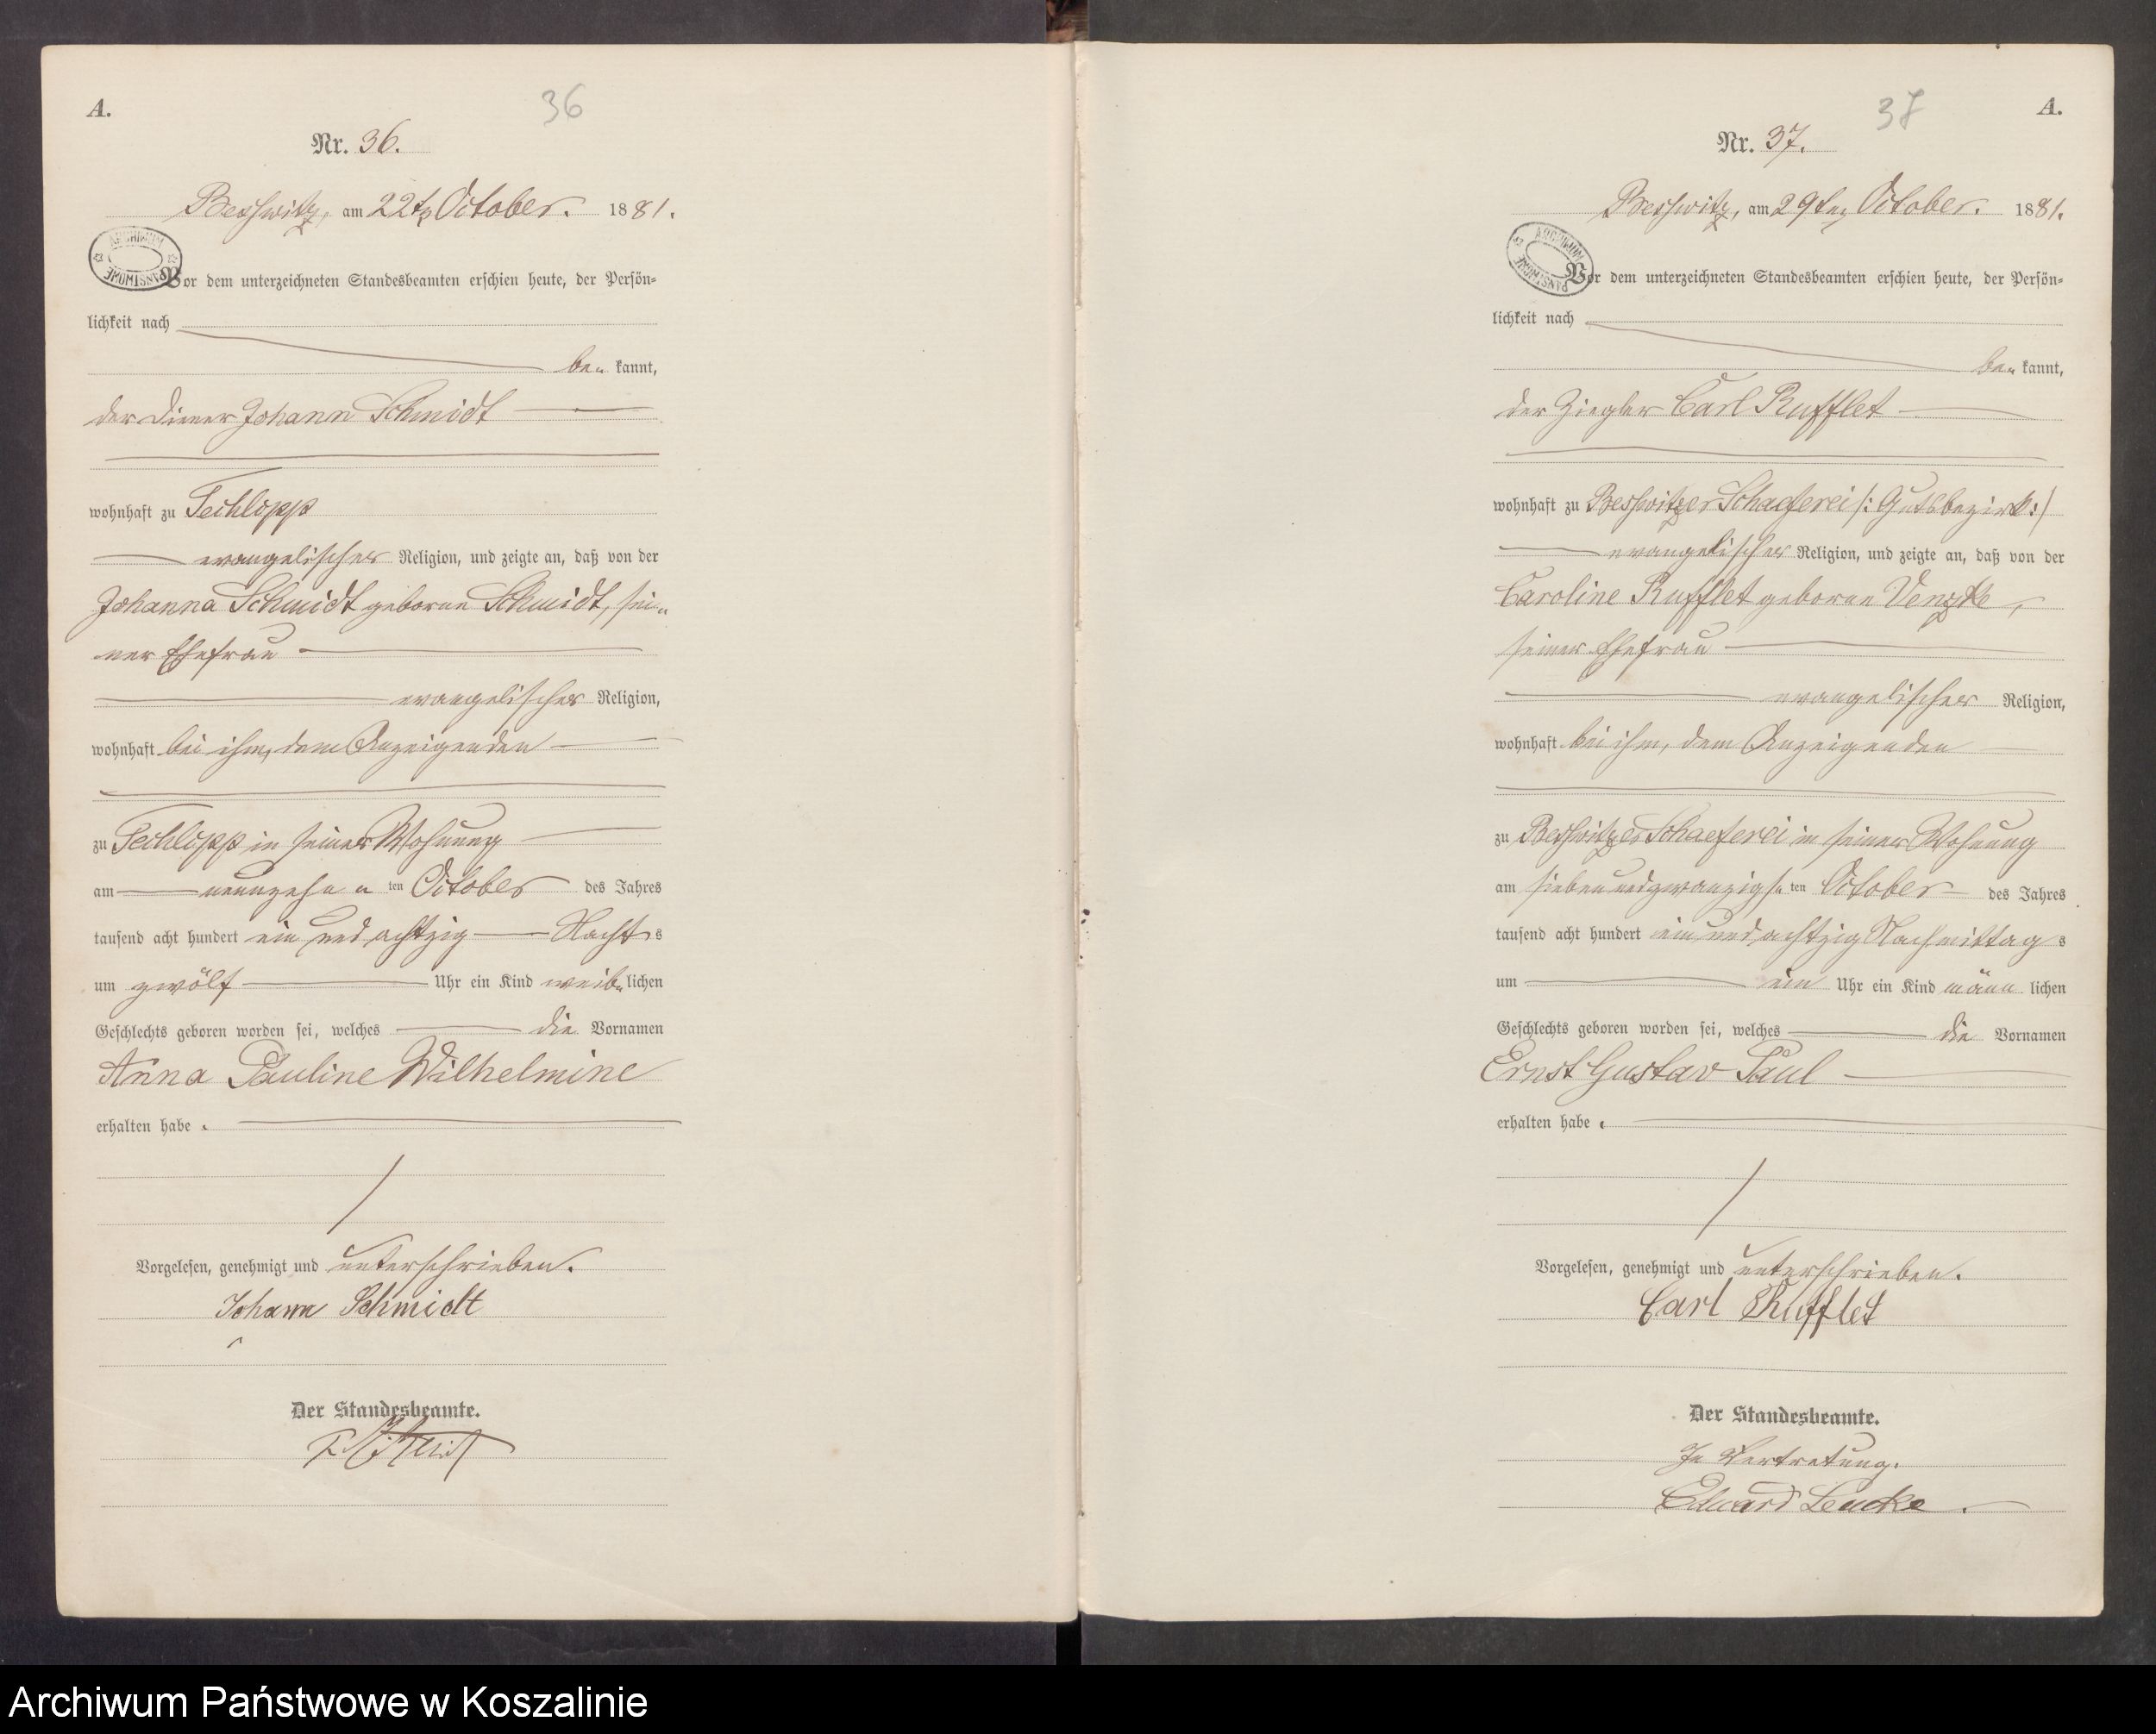 A.
36
Nr. 36.
Besswitz, am 22ten October. 1881.
ARCHIWUM PAŃSTWOWE
Vor dem unterzeichneten Standesbeamten erschien heute, der Persön=
lichkeit nach
be= kannt,
der Diener Johann Schmidt
wohnhaft zu Techlipp
evangelischer Religion, und zeigte an, daß von der
Johanna Schmidt geborne Schmidt, sei=
ner Ehefrau
evangelischer Religion,
wohnhaft bei ihm, dem Anzeigenden
zu Techlipp in seiner Wohnung
am neunzehn= ten October des Jahres
tausend acht hundert ein und achtzig Nachts
um zwölf Uhr ein Kind weib=lichen
Geschlechts geboren worden sei, welches die Vornamen
Anna Pauline Wilhelmine
erhalten habe.
Vorgelesen, genehmigt und unterschrieben.
Johann Schmidt
Der Standesbeamte.
37
A.
Nr. 37.
Besswitz, am 29ten October. 1881.
ARCHIWUM PAŃSTWOWE
Vor dem unterzeichneten Standesbeamten erschien heute, der Persön=
lichkeit nach
be= kannt,
der Ziegler Carl Rufflet
wohnhaft zu Besswitzer Schaeferei /: Gutsbezirk :/
evangelischer Religion, und zeigte an, daß von der
Caroline Rufflet geborne Venzke,
seiner Ehefrau
evangelischer Religion,
wohnhaft bei ihm, dem Anzeigenden
zu Besswitzer Schaeferei in seiner Wohnung
am siebenundzwanzigsten October des Jahres
tausend acht hundert ein und achtzig Nachmittags
um ein Uhr ein Kind männ lichen
Geschlechts geboren worden sei, welches die Vornamen
Ernst Gustav Paul
erhalten habe.
Vorgelesen, genehmigt und unterschrieben.
Carl Rufflet
Der Standesbeamte.
In Vertretung.
Eduard
Archiwum Państwowe w Koszalinie